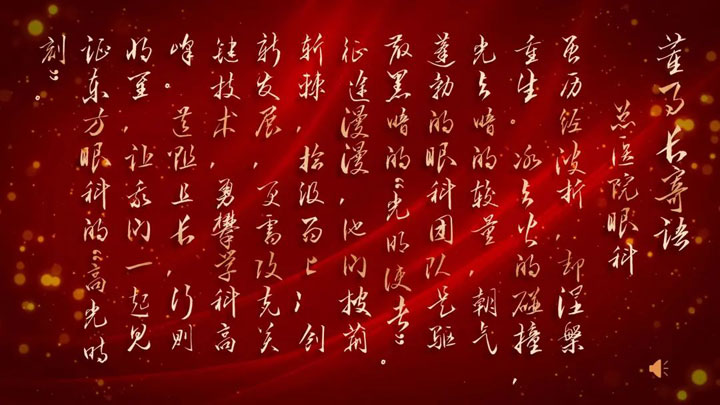 董事长寄语
总医院眼科
虽历经波折，却涅槃
重生。冰与火的碰撞，
光与暗的较量，朝气
蓬勃的眼科团队是驱
散黑暗的“光明使者”。
征途漫漫，他们披荆
斩棘，拾级而上；创
新发展，更需攻克关
键技术，勇攀学科高
峰。道阻且长，行则
将至，让我们一起见
证东方眼科的“高光时
刻”。